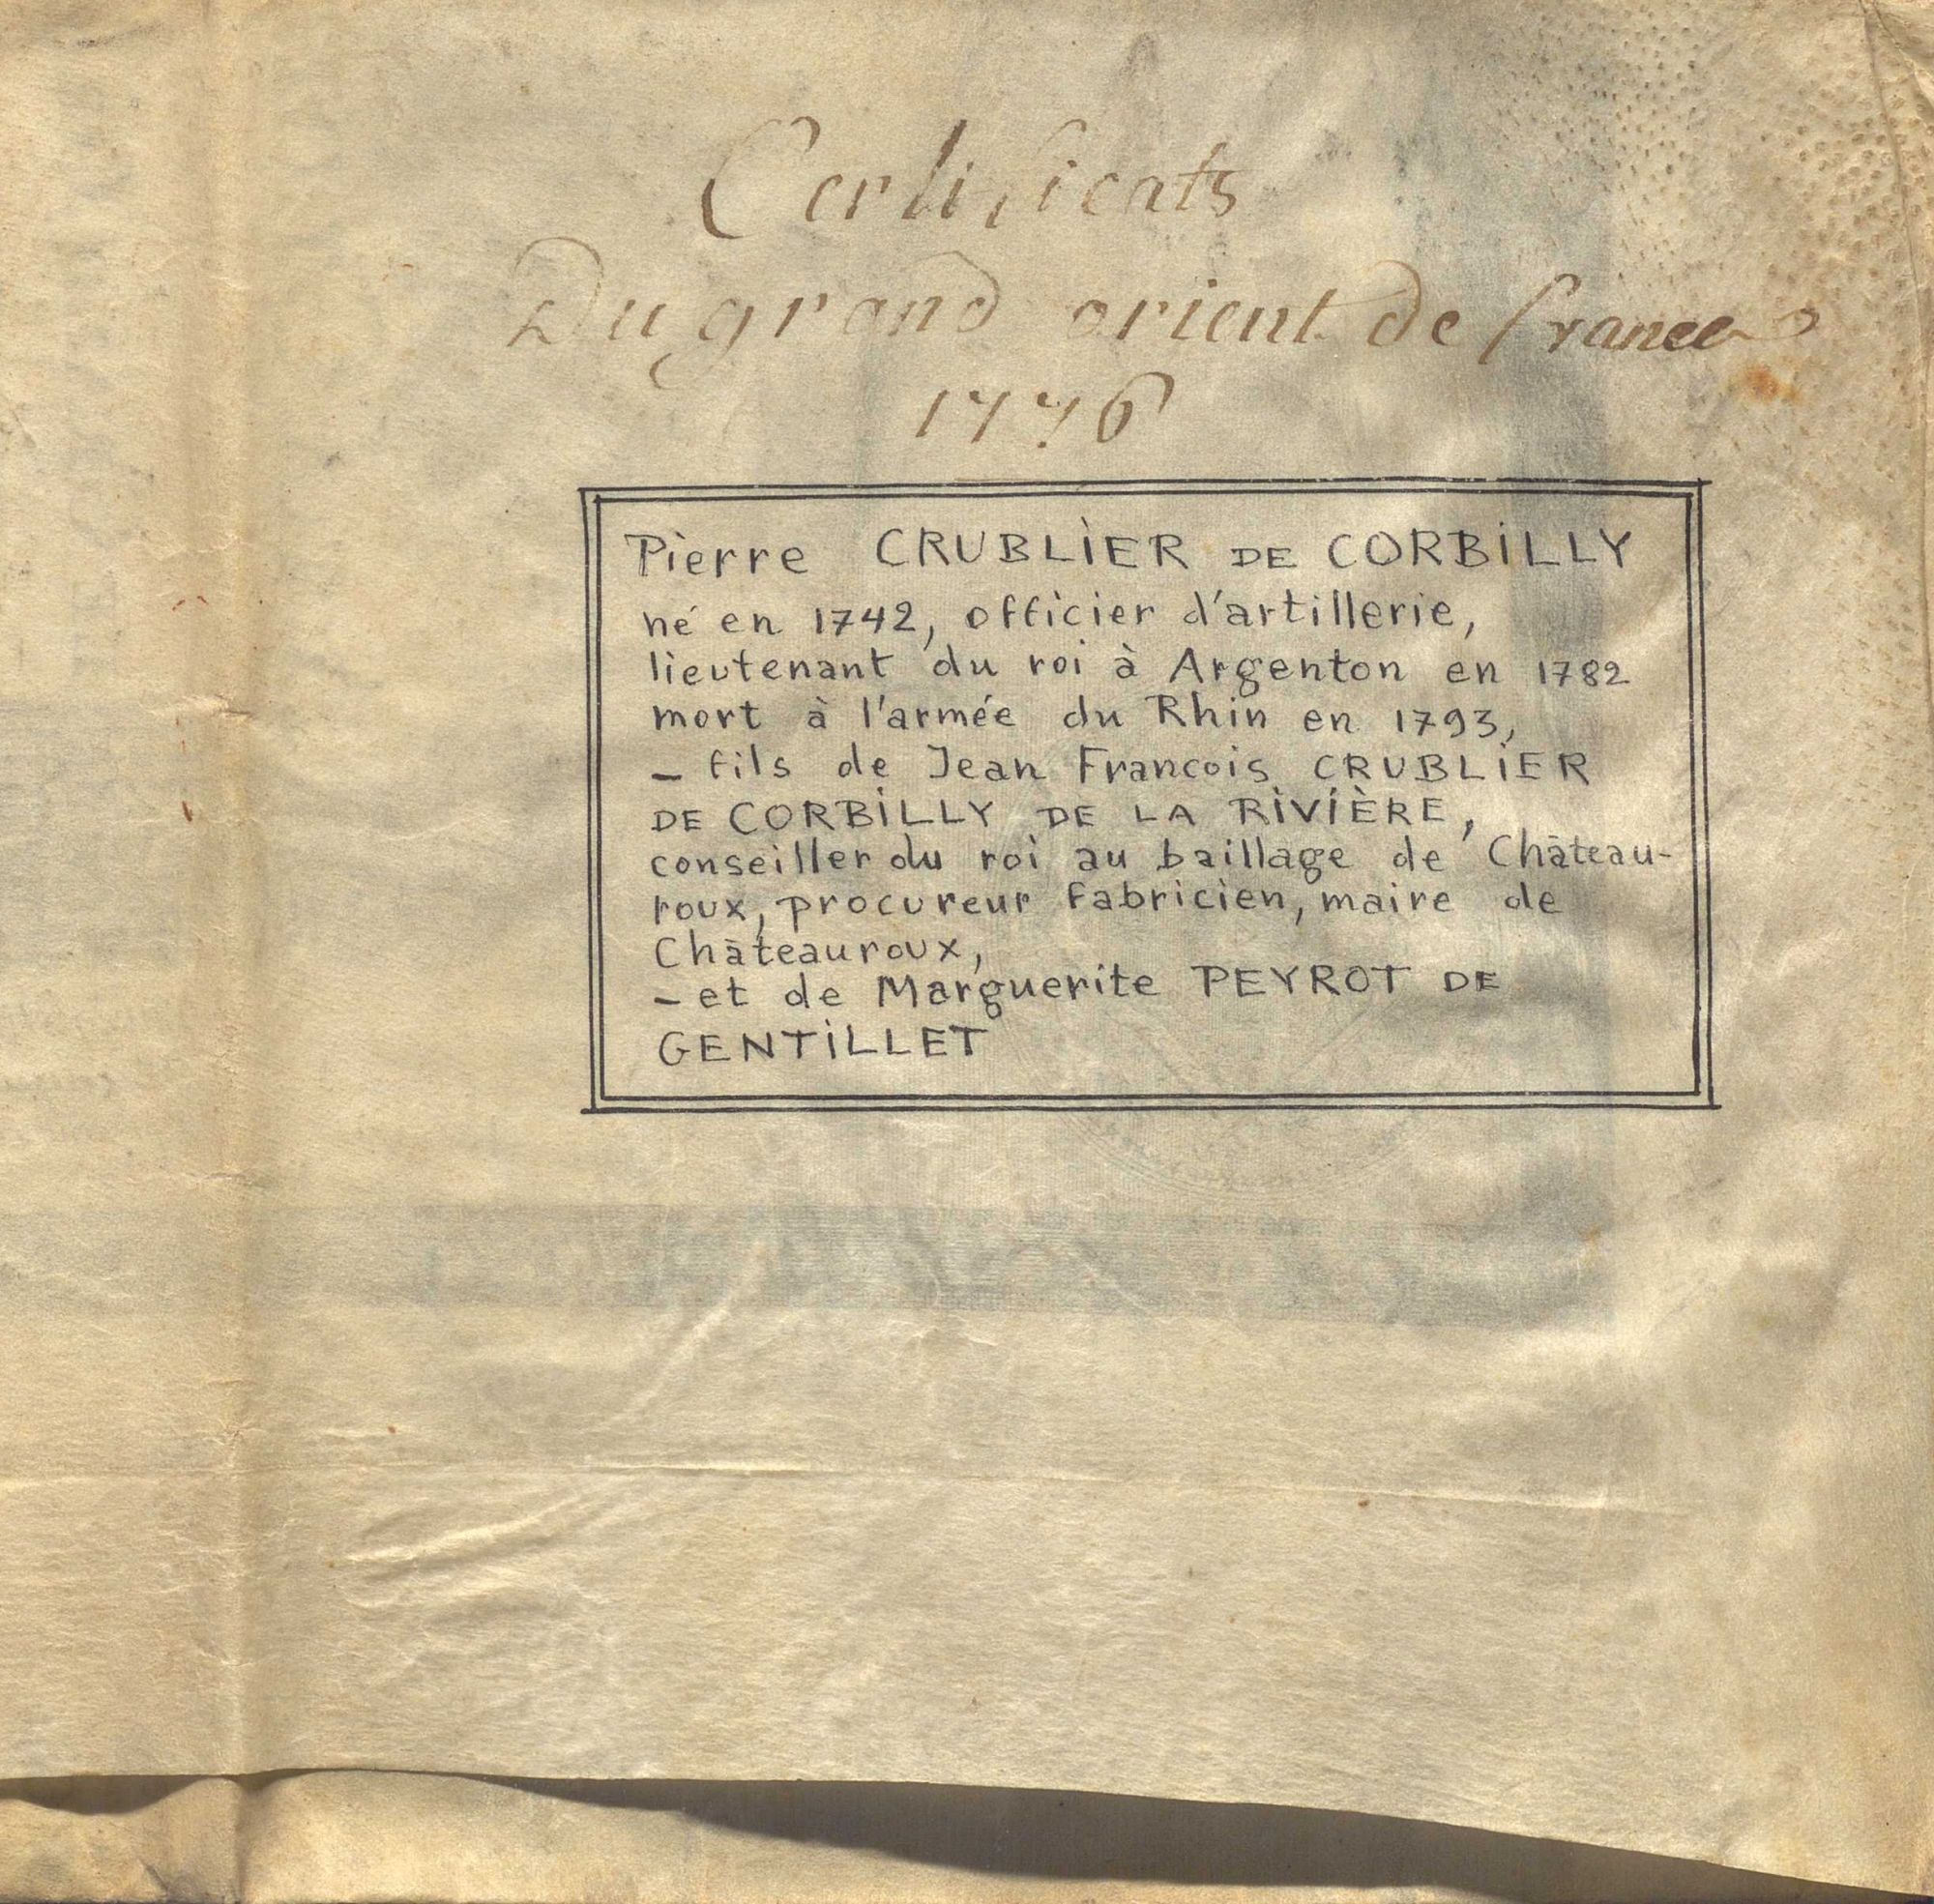 Certificats
Du grand orient de france
1776
Pierre CRUBLIER DE CORBILLY
né en 1742, officier d'artillerie,
lieutenant du roi à Argenton en 1782
mort à l'armée du Rhin en 1793,
– fils de Jean Francois CRUBLIER
DE CORBILLY DE LA RIVIÈRE,
conseiller du roi au baillage de Château-
roux, procureur fabricien, maire de
Châteauroux,
– et de Marguerite PEYROT DE
GENTILLET